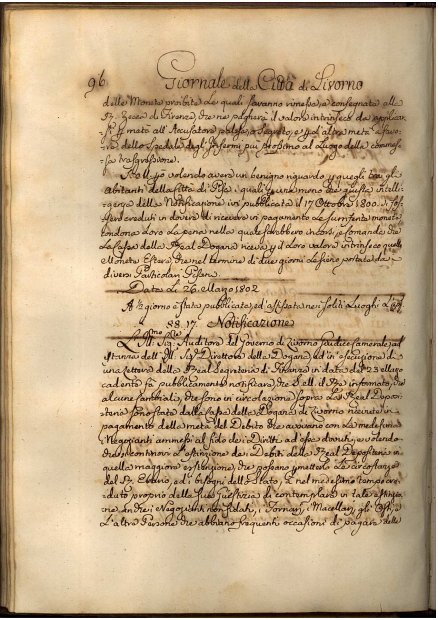 96 Giornale della Città di Livorno
delle Monete proibite Le quali saranno rimesse, e consegnate alla
R. Zecca di Firenze, che ne pagherà il valore intrinseco da applicar
si p metà all' Accusatore palese, o segreto, e p l' altra metà a favo
re dello Spedale degl' Infermi più prossimo al Luogo della commes
sa trasgressione.
volendo avere un benigno riguardo p quegli tra gli
abitanti della Città di Pisa, i quali p una meno che giusta intelli
genza della Notificazione ivi pubblicata il 17 Ottobre 1800. si fos
sero creduti in dovere di ricevere in pagamento Le surriferite monete
condona Loro La pena nella quale sarebbero incorsi, e comanda che
La Cassa della Real Dogana riceva p il Loro valore intrinseco quelle
Monete Estere che nel termine di due giorni Le siano portate da
diversi Particolari Pisani.
Data Li 26. Marzo 1802
A dì giorno è stata pubblicata, ed affissa nei soliti Luoghi
88. 17. Notificazione
L' Ill. Sig. Auditore del Governo di Livorno Giudice Camerale, ad
Istanza dell' Ill. Sig. Direttore della Dogana, ed in esecuzione di
una Lettera della Real Segreteria di Finanze in data de' 23 Marzo
cadente fa pubblicamente notificare, che S. M. il Re informato, che
alcune Cambiali, che sono in circolazione sopra La Real Deposi
teria sono state dalla Cassa della Dogana di Livorno ricevute in
pagamento della metà del Debito che avevano con La medesima
Negozianti ammessi al fido dei Diritti ad essa dovuti, e volendo
che si continovi L' estinzione dei Debiti della Real Depositeria in
quella maggiore estensione, che possano permetterlo Le circostanze
del R. Erario, ed i bisogni dello Stato, e nel medesimo tempo cre
duto proprio della Sua Giustizia di contemplare in tale estinzio
ne anche i Negozianti non fidati, i Fornari, i Macellari, gli Osti, e
L' altre Persone che abbiano frequenti occasioni di pagare delle